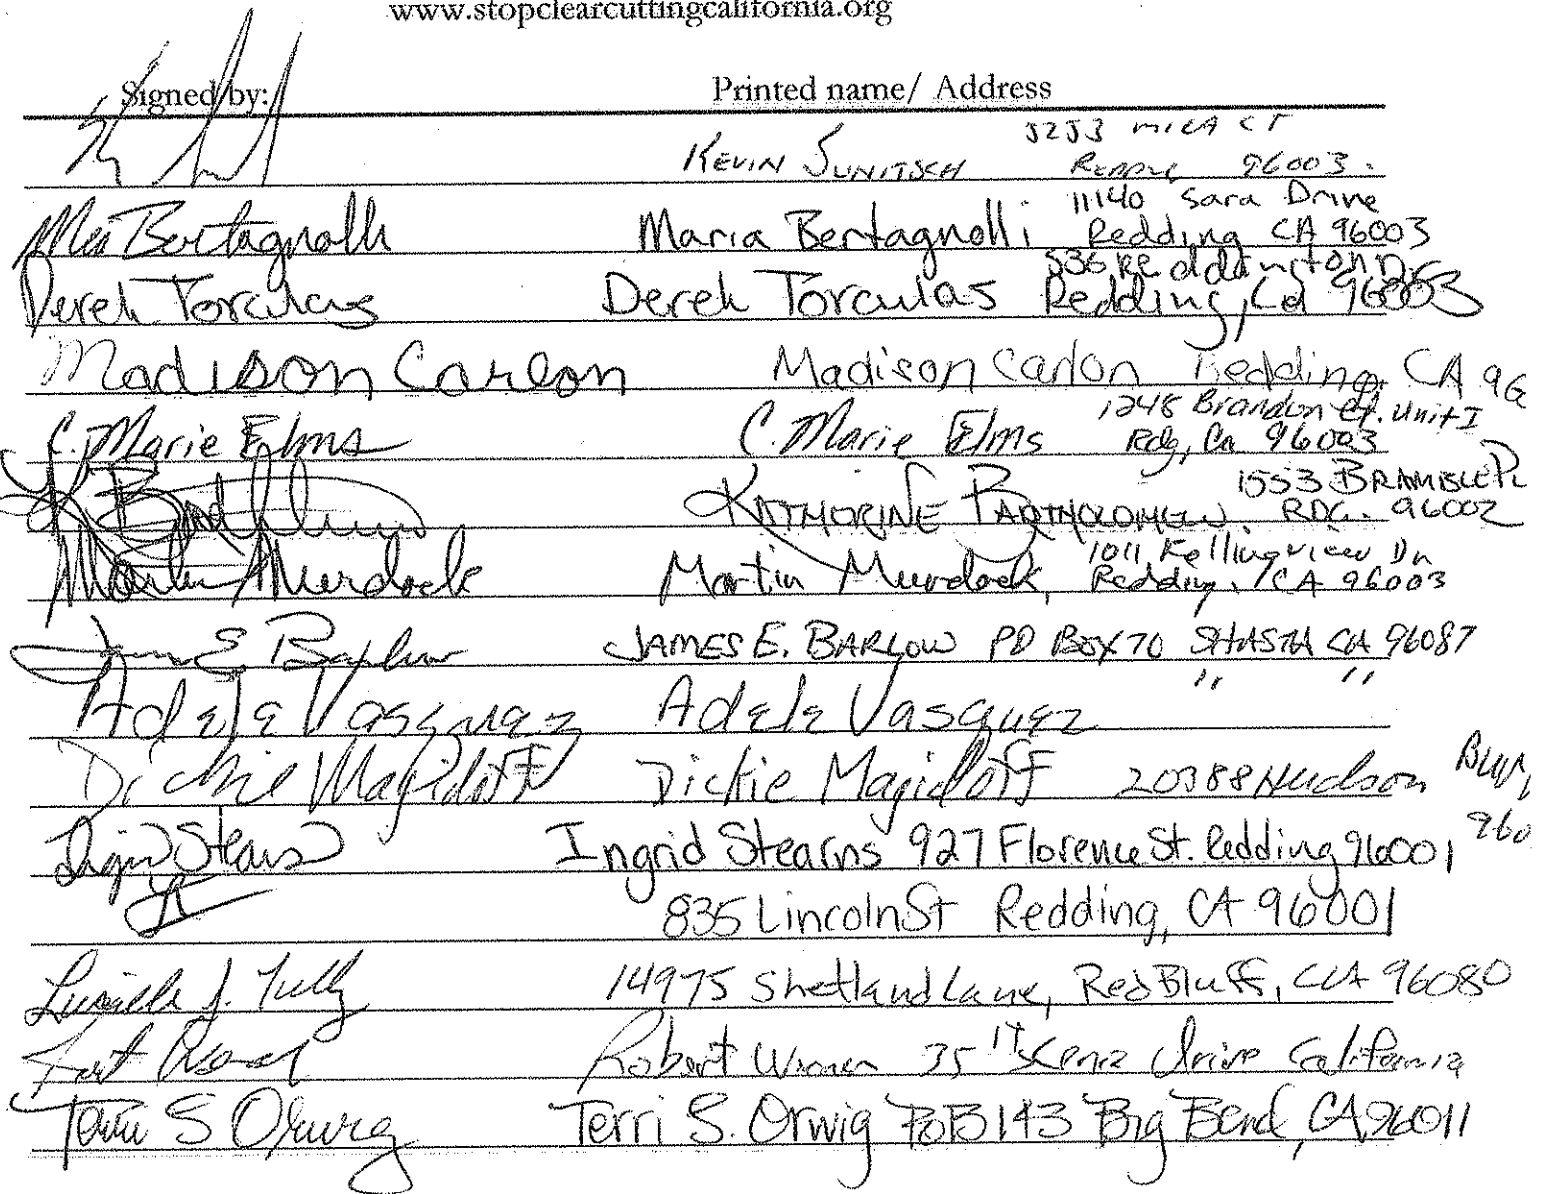 www.stopclearcuttingcalifornia.org
Signed by: Printed name/ Address
KEVIN SUNITSCH MICA CT
96003.
Bertagnolli Maria Bertagnolli 11140 Sara Drive
Redding CA 96003
Derek Torculas Derek Torculas
Redding, Ca 96003
Madison Carlon Madison Carlon Redding, CA 96
C. Marie Elms C. Marie Elms 1248 Brandon Ct. Unit I
Rdg, Ca 96003
K. KATHERINE BARTHOLOMEW. 1553 BRAMBLE PL
RDG. 96002
Martin Murdock Martin Murdock, 1011 Dr
Redding, CA 96003
James E. Barlow JAMES E. BARLOW PO BOX 70 SHASTA CA 96087
Adele Vasquez Adele Vasquez " "
Dickie Magidoff Dickie Magidoff 20388 Hudson
960
Ingrid Stearns Ingrid Stearns 927 Florence St. Redding 96001
835 Lincoln St Redding, CA 96001
J. Tully 14975 Shetland Lane, Red Bluff, CA 96080
Robert 35 Drive California
Terri S Orwig Terri S. Orwig POB 143 Big Bend, CA 96011